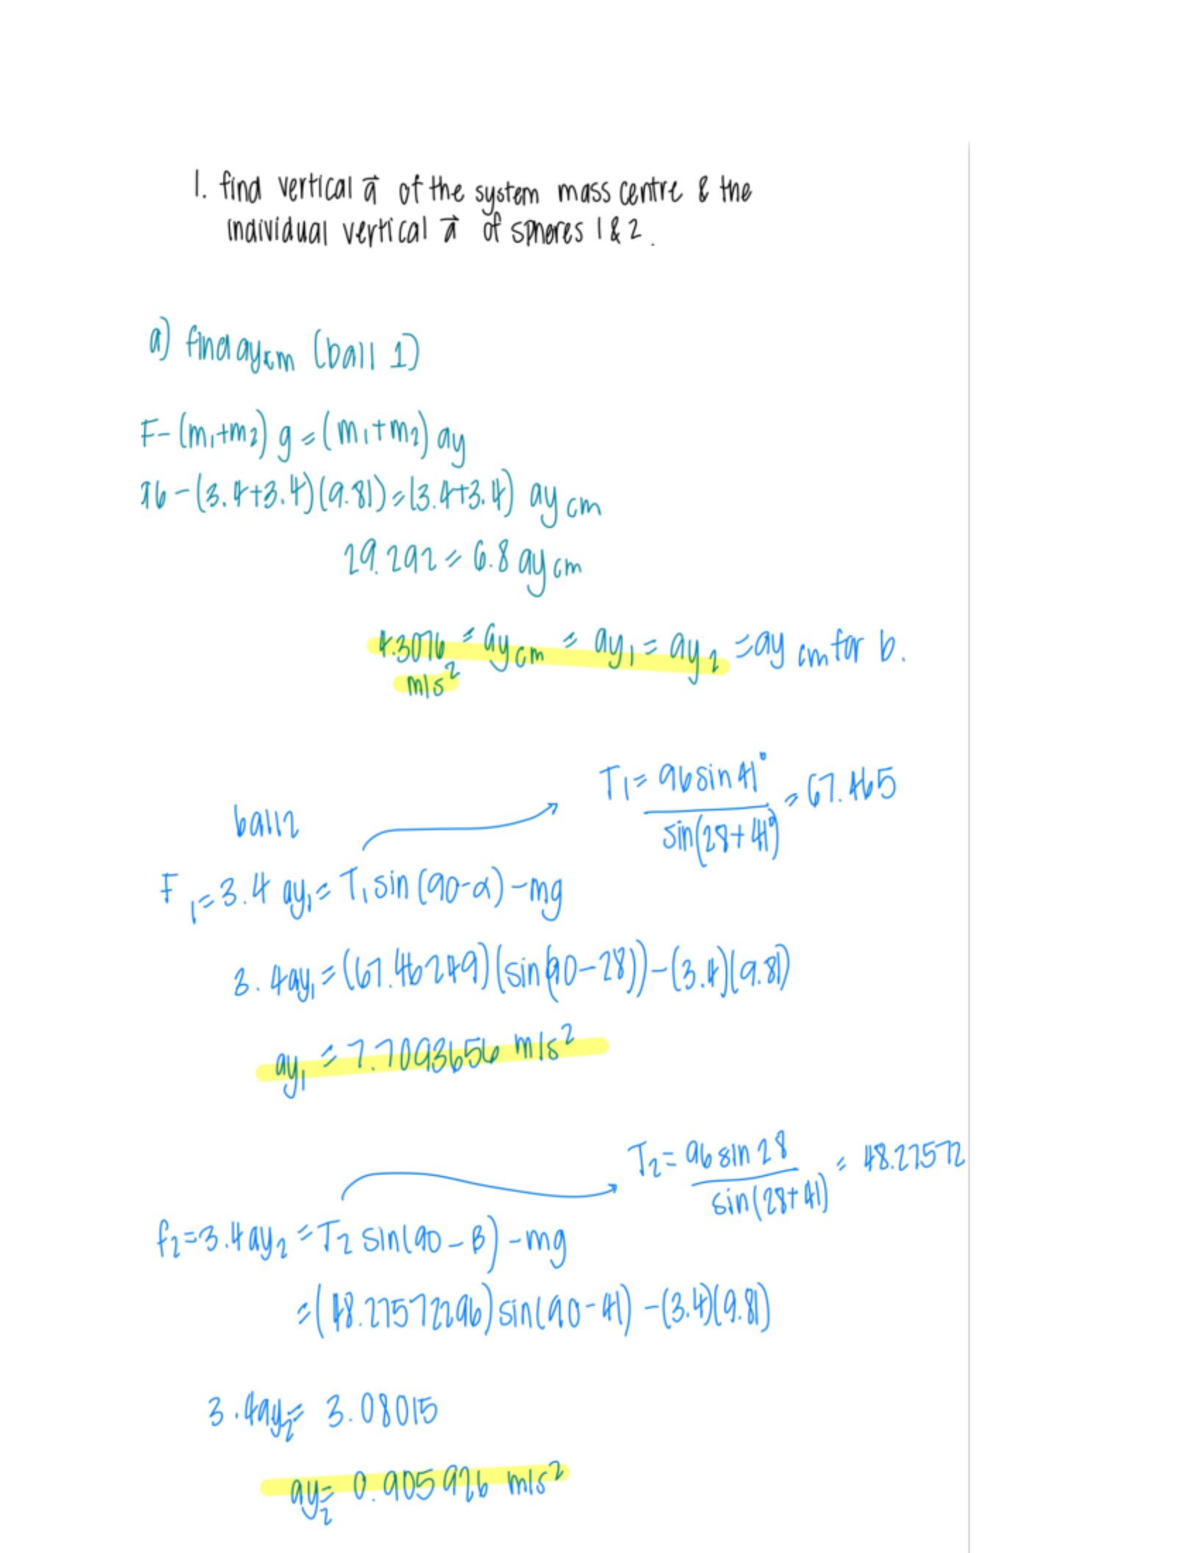 1. find vertical a⃗ of the system mass centre & the
individual vertical a⃗ of spheres 1 & 2.
a) find aycm (ball 1)
F-(m₁+m₂) g = (m₁+m₂) ay
96-(3.4+3.4)(9.81)=(3.4+3.4) ay cm
29.292 = 6.8 ay cm
4.3076 m/s² = ay cm = ay₁ = ay₂ = ay cm for b.
T₁ = 96 sin 41° / sin(28+41°) = 67.465
ball 2
F₁ = 3.4 ay₁ = T₁ sin (90-α) - mg
3.4ay₁ = (67.46249)(sin(90-28)) - (3.4)(9.81)
ay₁ = 7.7093656 m/s²
T₂ = 96 sin 28 / sin(28+41) = 48.27572
f₂=3.4ay₂ = T₂ sin(90-β) - mg
=(48.27572296) sin(90-41) - (3.4)(9.81)
3.4ay₂ = 3.08015
ay₂ = 0.905926 m/s²